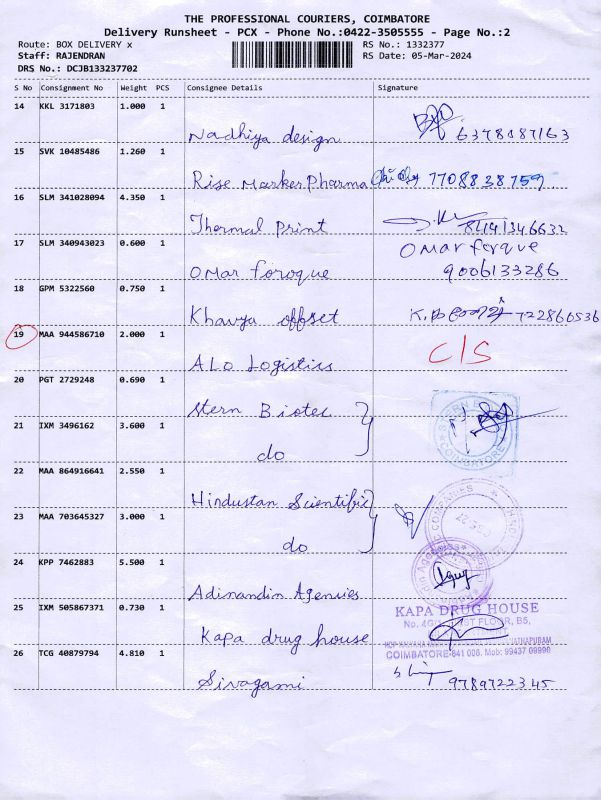 THE PROFESSIONAL COURIERS, COIMBATORE
Delivery Runsheet - PCX - Phone No.:0422-3505555 - Page No.:2
Route: BOX DELIVERY x RS No.: 1332377
Staff: RAJENDRAN RS Date: 05-Mar-2024
DRS No.: DCJB133237702
S No Consignment No Weight PCS Consignee Details Signature
14 KKL 3171803 1.000 1
Nadhiya design 6378487163
15 SVK 10485486 1.260 1
Rise Marker Pharma 7708838759
16 SLM 341028094 4.350 1
Thermal Print 84141346632
17 SLM 340943023 0.600 1
Omar faroque
Omar foroque 9006133286
18 GPM 5322560 0.750 1
Khavya offset 722860536
19 MAA 944586710 2.000 1
ALo Logistics C/S
20 PGT 2729248 0.690 1
Stern Biotec
21 IXM 3496162 3.600 1
do COIMBATORE
22 MAA 864916641 2.550 1
Hindustan Scientific
23 MAA 703645327 3.000 1
do
24 KPP 7462883 5.500 1
Adinandin Agencies
25 IXM 505867371 0.730 1
KAPA DRUG HOUSE
Kapa drug house
26 TCG 40879794 4.810 1
COIMBATORE-641 008. Mob: 99437 09990
Sivagami 9789722345